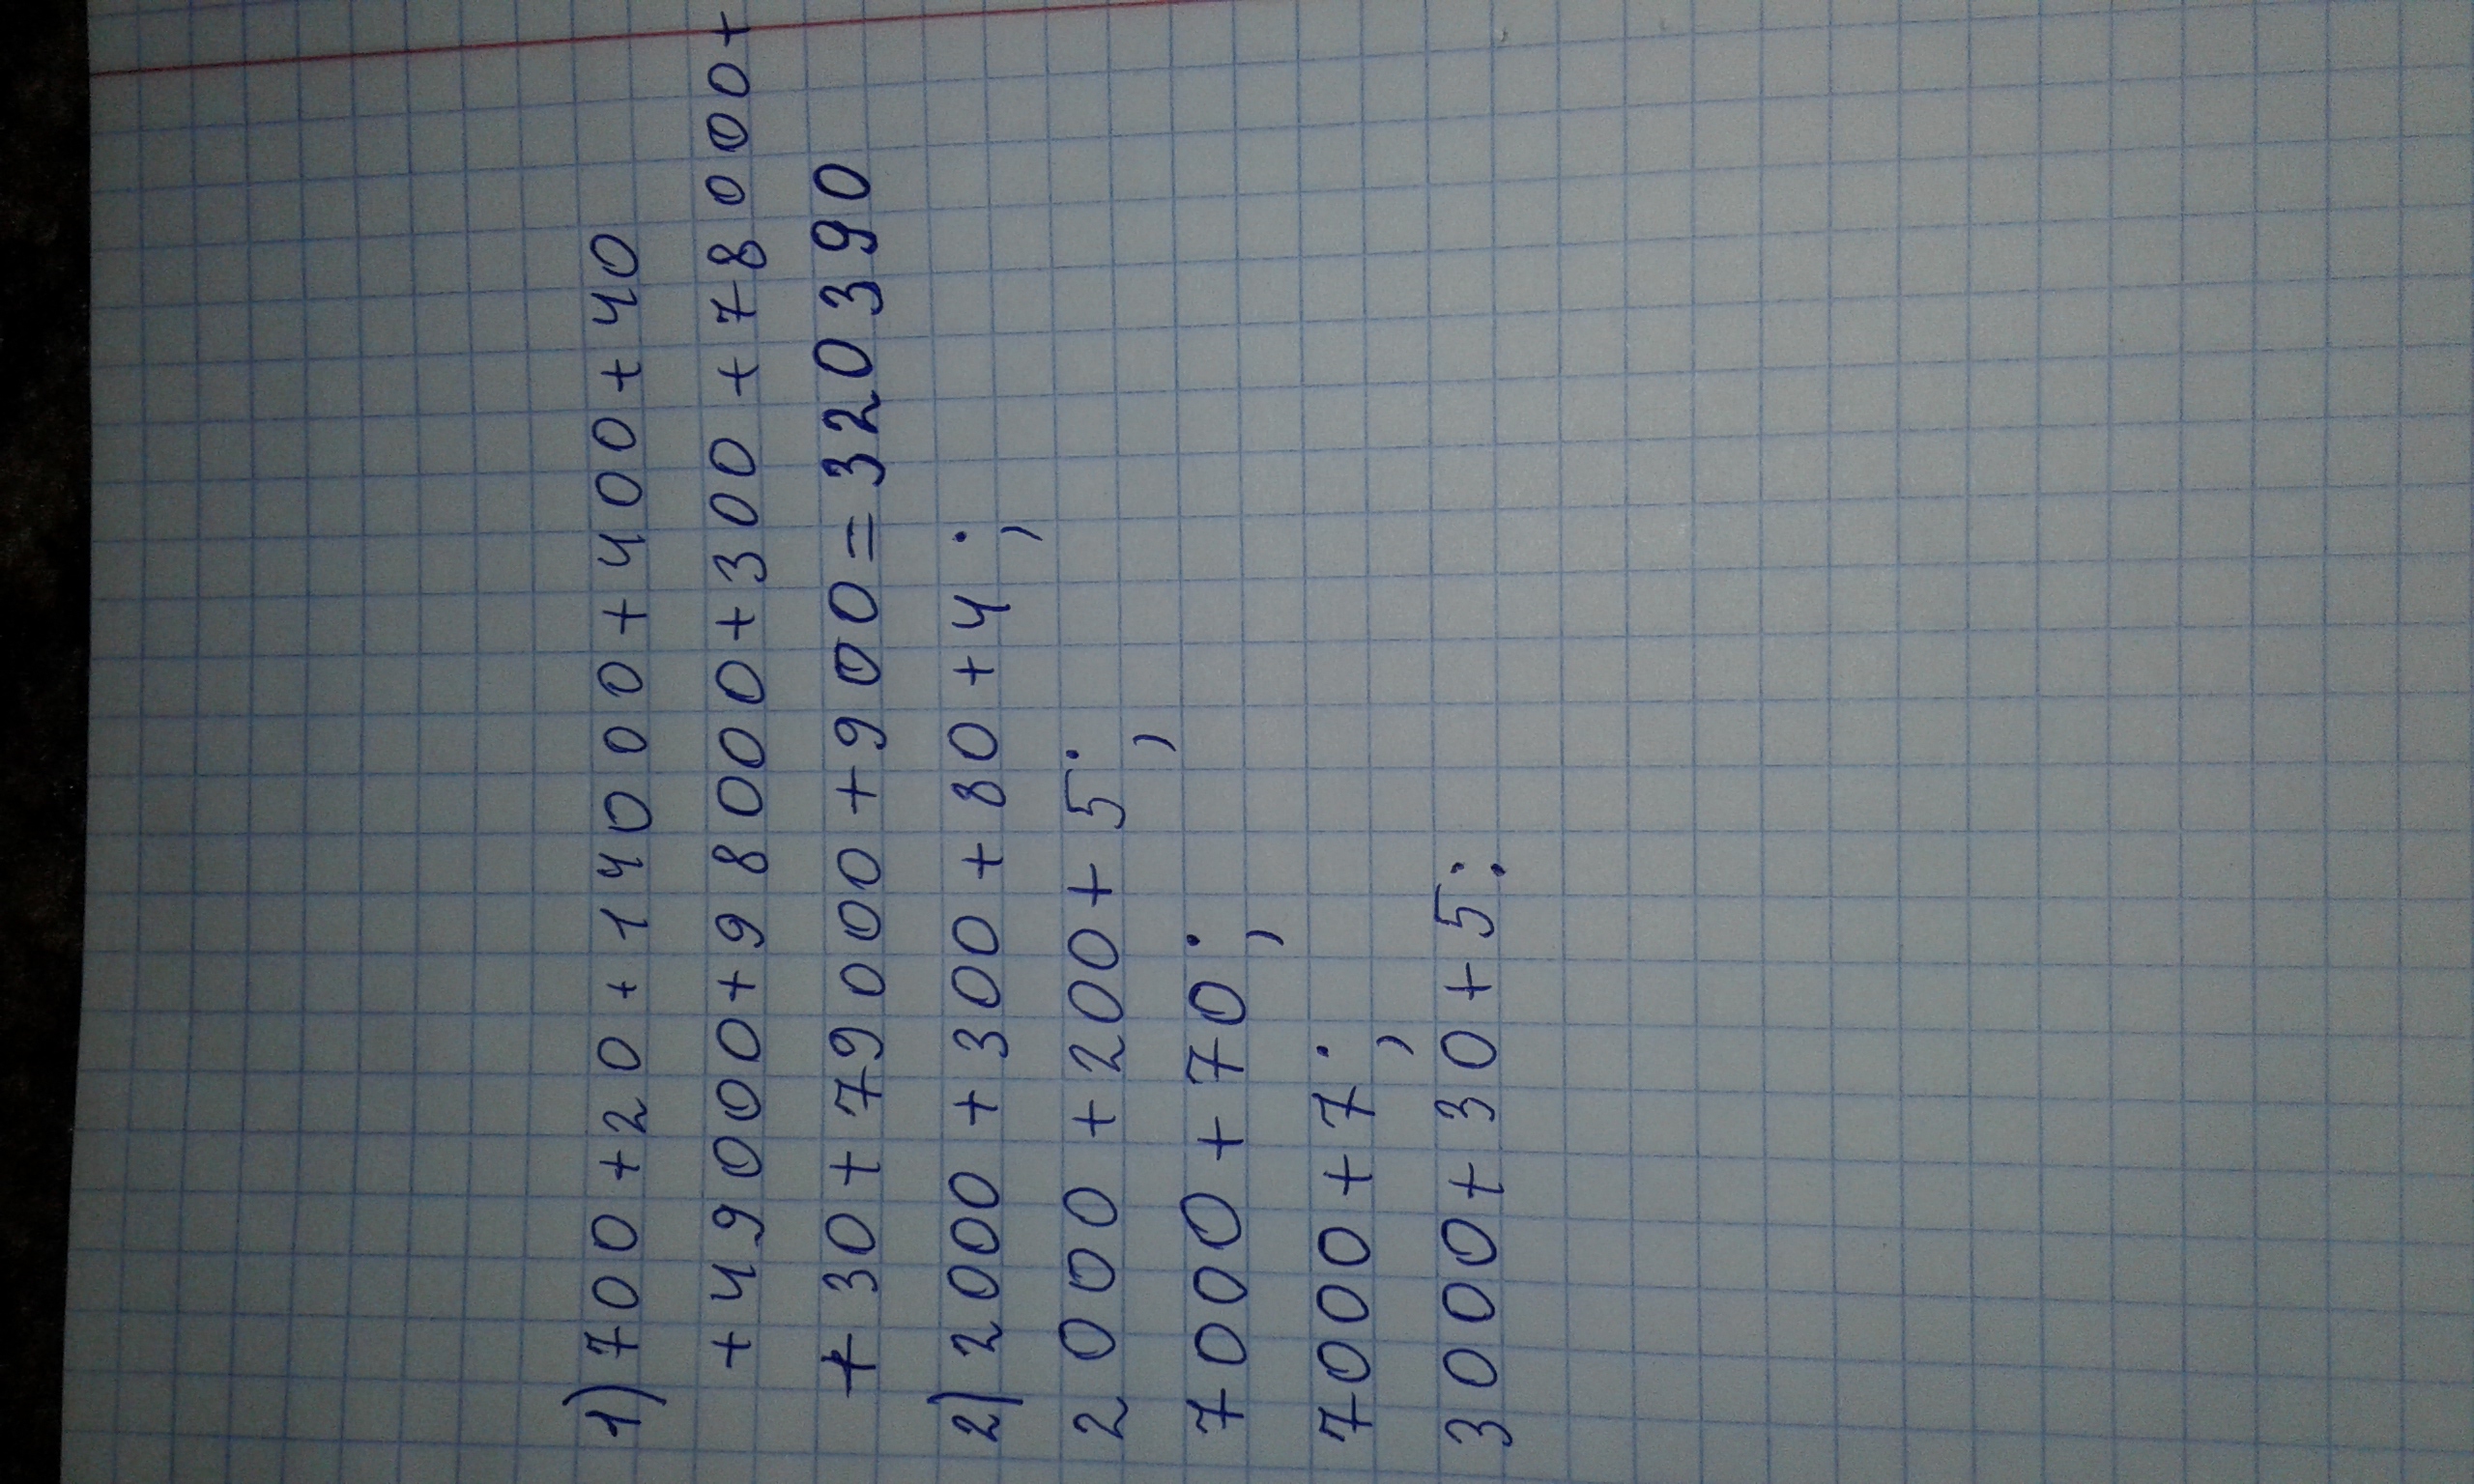 1) 700+20+14000+400+40
+49000+98000+300+78000+
+30+79000+900=320390
2) 2000+300+80+4;
2000+200+5;
7000+70;
7000+7;
3000+30+5: